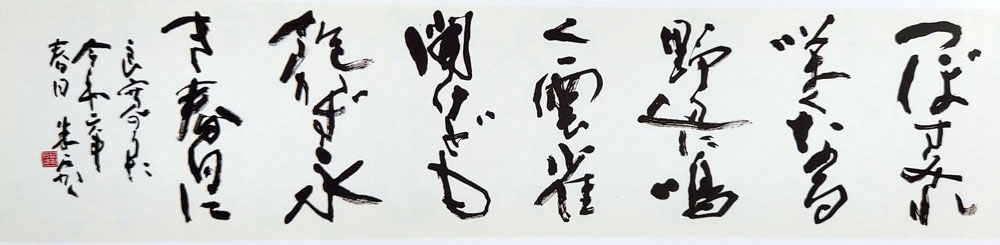 つぼすみれ
咲くなる
野辺に鳴
く雲雀
聞けども
飽かず永
き春日に
良寛
令和二年
春日